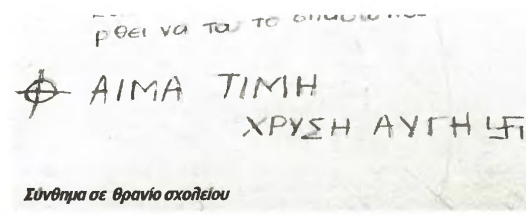 ρθει να τα το
ΑΙΜΑ ΤΙΜΗ
ΧΡΥΣΗ ΑΥΓΗ 卐
Σύνθημα σε θρανίο σχολείου